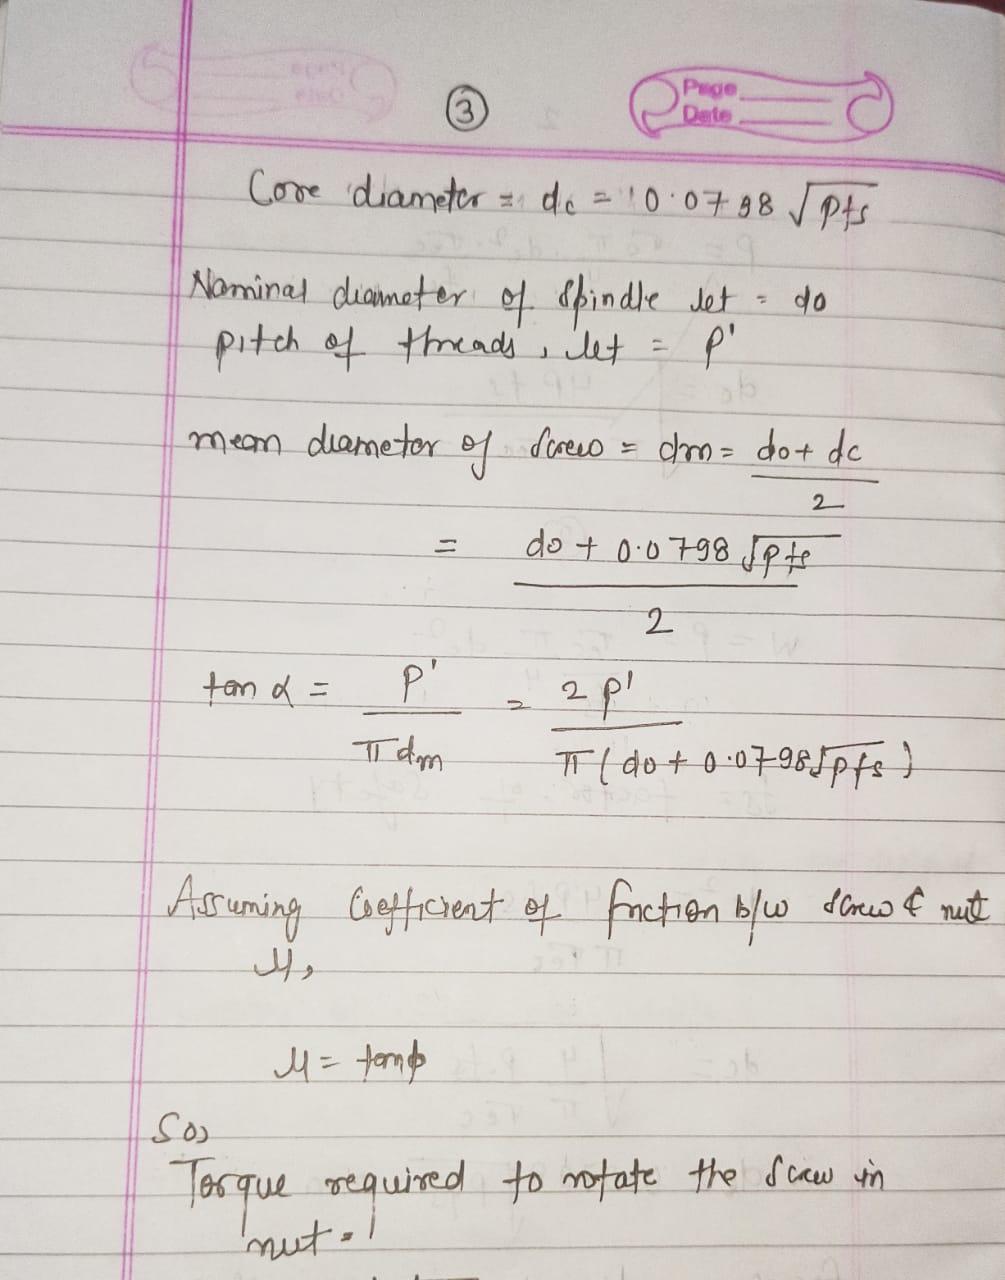 3
Page
Date
Core diameter = dc = 0.0798 √pfs
Nominal diameter of spindle let = do
pitch of threads, let = p'
mean diameter of screw = dm = do + dc
2
= do + 0.0798 √pfs
2
tan α = p' = 2 p'
π dm π (do + 0.0798√pfs)
Assuming Coefficient of friction b/w screw & nut
μ,
μ = tanϕ
So,
Torque required to rotate the screw in
nut =